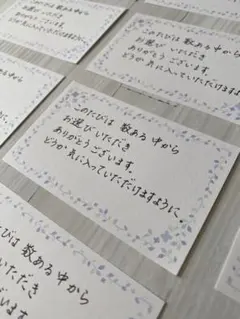 このたびは 数ある中から
お選びいただき
ありがとうございます。
どうか気に入っていただけますように。
このたびは 数ある中から
お選びいただき
ありがとうございます。
どうか気に入っていただけますように。
たびは 数ある中から
いただき
ございます。